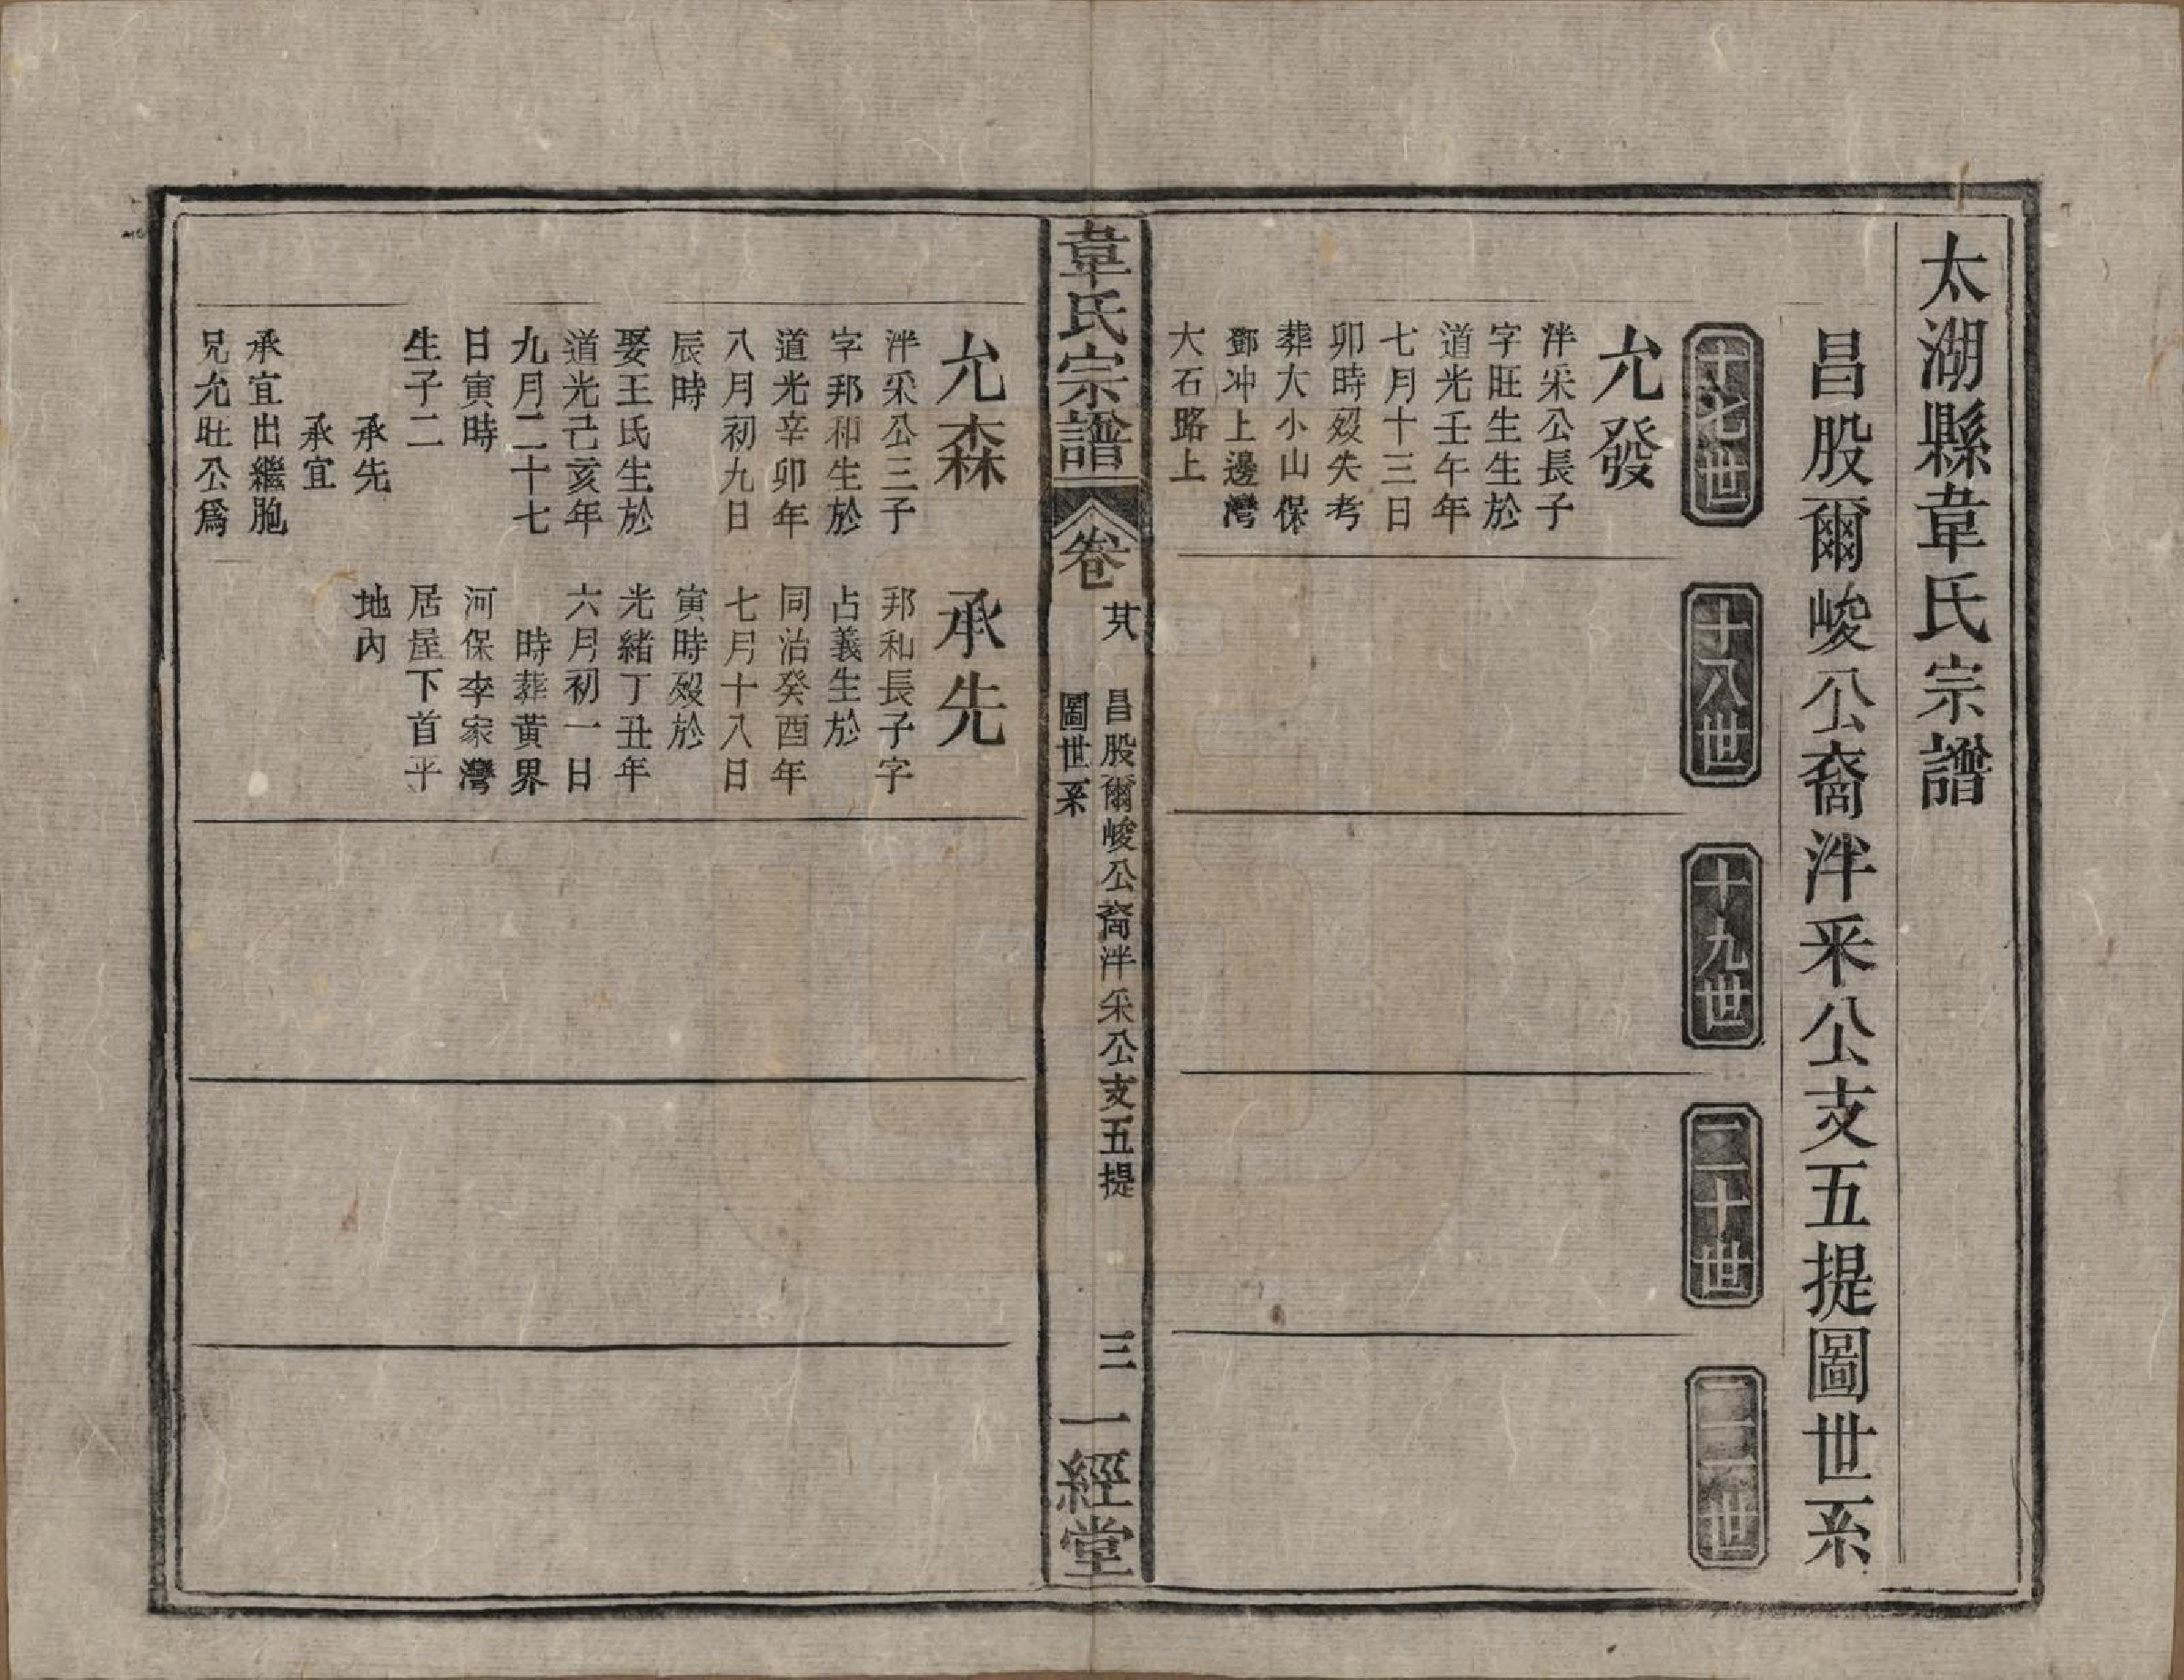 太湖縣韋氏宗譜
昌股爾峻公裔泮采公支五提圖世系
十七世
十八世
十九世
二十世
二一世
允發
泮采公長子
字旺生生於
道光壬午年
七月十三日
卯時歿失考
葬大小山保
鄧冲上邊灣
大石路上
韋氏宗譜
卷
其
昌股爾峻公裔泮采公支五提
圖世系
三
一經堂
允森
泮采公三子
字邦和生於
道光辛卯年
八月初九日
辰時
娶王氏生於
道光己亥年
九月二十七
日寅時
生子二
承先
承宜
承宜出繼胞
兄允旺公爲
承先
邦和長子字
占義生於
同治癸酉年
七月十八日
寅時歿於
光緒丁丑年
六月初一日
時葬黃界
河保李家灣
居屋下首平
地內